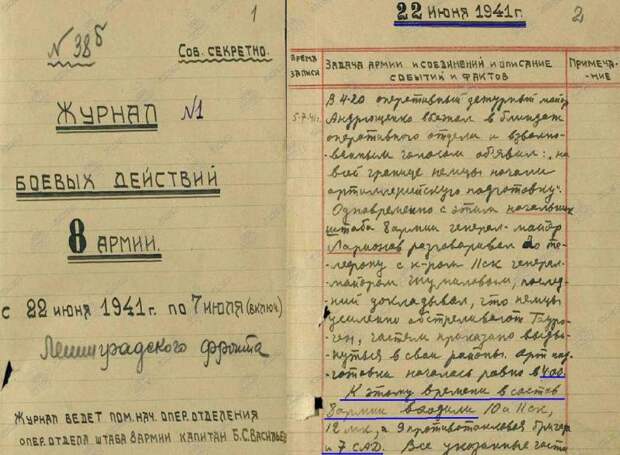 1
N 38б
Сов. секретно.
Журнал №1
боевых действий
8 армии.
с 22 июня 1941г. по 7 июля (включ)
Ленинградского фронта
Журнал ведет пом. нач. опер. отделения
опер. отдела штаба 8 армии капитан Б.С. Васильев
22 июня 1941г.
2
Время записи
Задача армии и соединений и описание событий и фактов
Примеча-ние
5.7.41г.
В 4-20 оперативный дежурный майор
Андрющенко вбежал в блиндаж
оперативного отдела и взволно-
-ванным голосом об'явил: "на
всей границе немцы начали
артиллерийскую подготовку".
Одновременно с этим начальник
штаба 8 армии генерал-майор
Ларионов разговаривал по те-
-лефону с к-ром 11ск генерал-
-майором Шумиловым, послед-
-ний докладывал, что немцы
усиленно обстреливают Тауро-
-ген, частям приказано выдви-
-нуться в свои районы. Арт под-
-готовка началась ровно в 4.00.
К этому времени в состав
8 армии входили 10 и 11ск,
12 мк, 9 противотанковая бригада
и 7 САД. Все указанные части